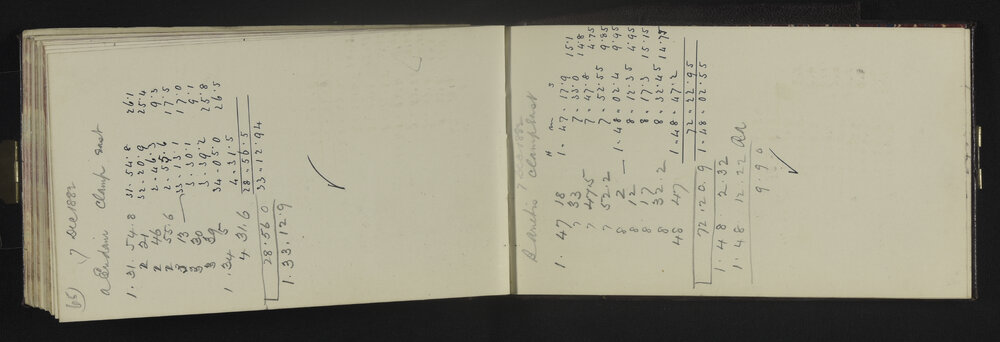 (65) 7 Dec 1882
a Eridani Clamp east
1.31.54.8 31.54.8 26.1
2 21 32.20.9 25.4
2 46 2.46.3 9.3
2 55.6 2.55.6 17.5
3 13 33.13.1 17.0
3 30 3.30.1 9.1
3 39 3.39.2 25.8
1.34 5 34.05.0 26.5
4 31.6 4.31.5
28.56 0 28.56.5
1.33.129 33.12.94
7 Dec 1882
Clamp East
H m s
1. 47 18 1.47.17.9 15.1
7 33 7.33.0 14.8
7 47.5 7.47.8 4.75
7 52.2 7.52.55 9.85
8 2 1.48.02.4 9.95
8 12 8.12.35 4.95
8 17 8.17.3 15.15
8 32.2 8.32.45 14.75
48 47 1.48.47.2
72.20.9 72.22.95
1.48 2.32 1.48.02.55
1.48 12.22 RA
9.90